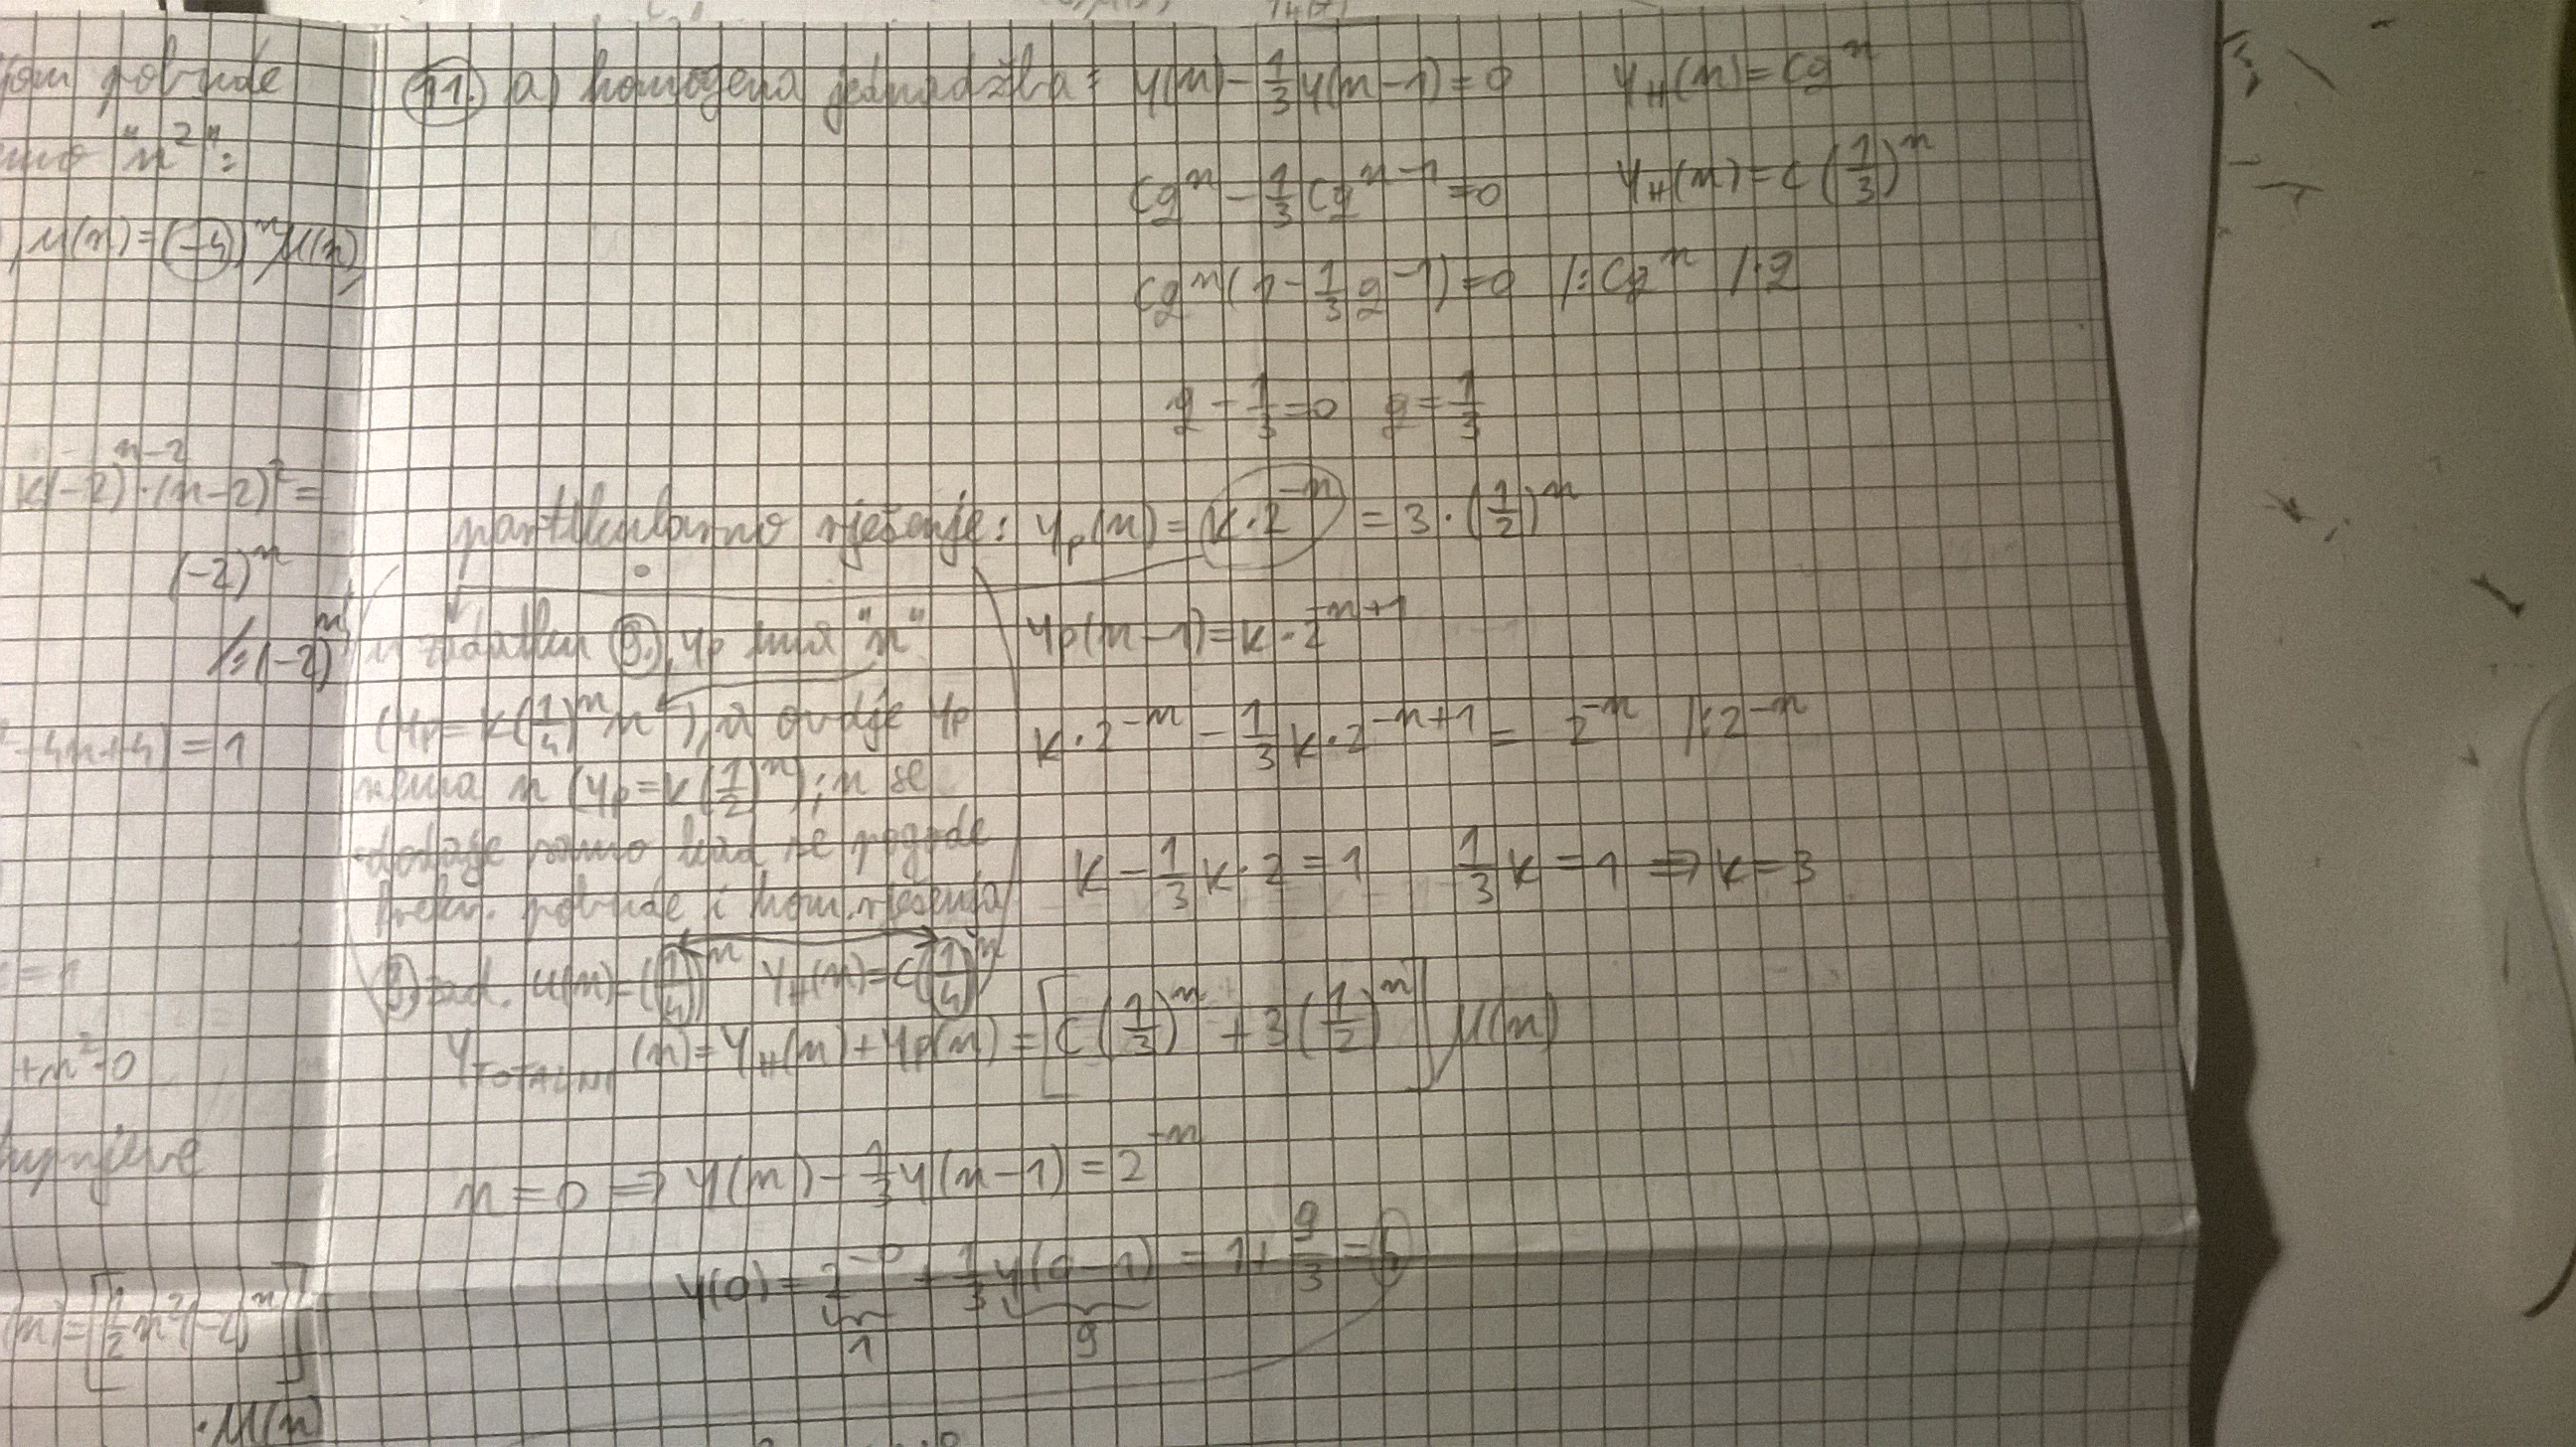 pobude
"n²":
μ(n)=(-4)ⁿμ(n)
k(-2)ⁿ⁻²·(n-2)²=
(-2)ⁿ
/:(-2)ⁿ
-4n+4)=1
=1
+n²·0
·μ(n)
11. a) homogena jednadžba: y(n)-1/3y(n-1)=0 y_H(n)=cqⁿ
cqⁿ-1/3cqⁿ⁻¹=0 y_H(n)=c(1/3)ⁿ
cqⁿ(1-1/3q⁻¹)=0 /:cqⁿ /·q
q-1/3=0 q=1/3
partikularno rješenje: y_p(n)=k·2⁻ⁿ=3·(1/2)ⁿ
u zadatku 9.), y_p ima "n"
(y_p=k(1/4)ⁿn), a ovdje y_p
nema n (y_p=k(1/2)ⁿ); n se
dodaje samo kad se pogode
frekv. pobude i hom. rješenja
9. zad. u(n)=(1/4)ⁿ y_H(n)=c(1/4)ⁿ
y_p(n-1)=k·2⁻ⁿ⁺¹
k·2⁻ⁿ-1/3k·2⁻ⁿ⁺¹=2⁻ⁿ /:2⁻ⁿ
k-1/3k·2=1 1/3k=1⇒k=3
y_TOTALNI(n)=y_H(n)+y_p(n)=[c(1/3)ⁿ+3(1/2)ⁿ]μ(n)
n=0⇒y(n)-1/3y(n-1)=2⁻ⁿ
y(0)=2⁻⁰+1/3y(0-1)=1+9/3=4
1 9